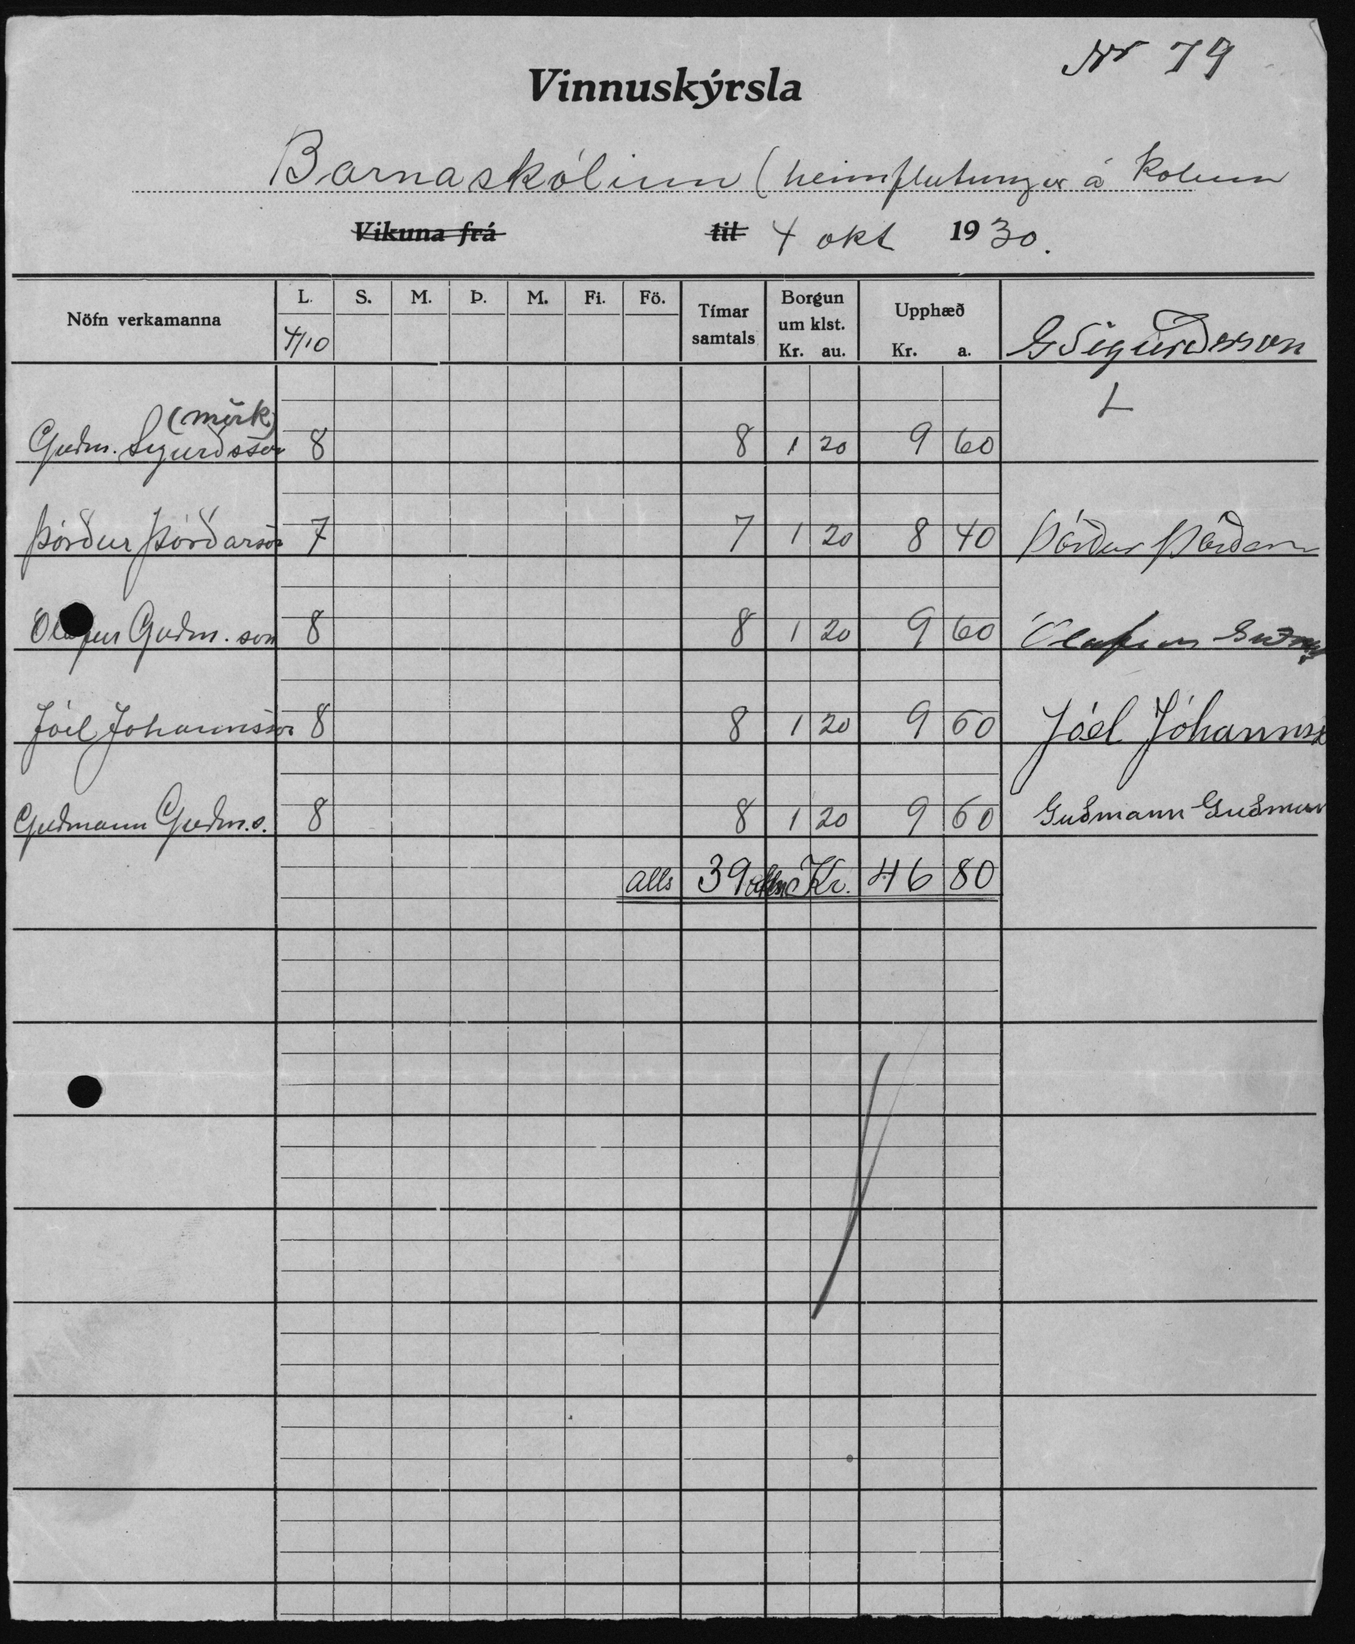 Nr 79
Vinnuskýrsla
Barnaskólinn (heimflutningur á kolum
Vikuna frá til 4 okt 1930.
Nöfn verkamanna L. S. M. Þ. M. Fi. Fö. Tímar samtals Borgun um klst. Kr. au. Upphæð Kr. a.
4/10 G Sigurðsson
(mörk)
Guðm. Sigurðsson 8 8 1 20 9 60
Þórður Þórðarson 7 7 1 20 8 40 Þórður Þórðarson
Ólafur Guðm.son 8 8 1 20 9 60 Ólafur Guðm
Jóel Jóhannsson 8 8 1 20 9 60 Jóel Jóhannss
Guðmann Guðm.s. 8 8 1 20 9 60 Guðmann Guðmun
alls 39 Kr. 46 80